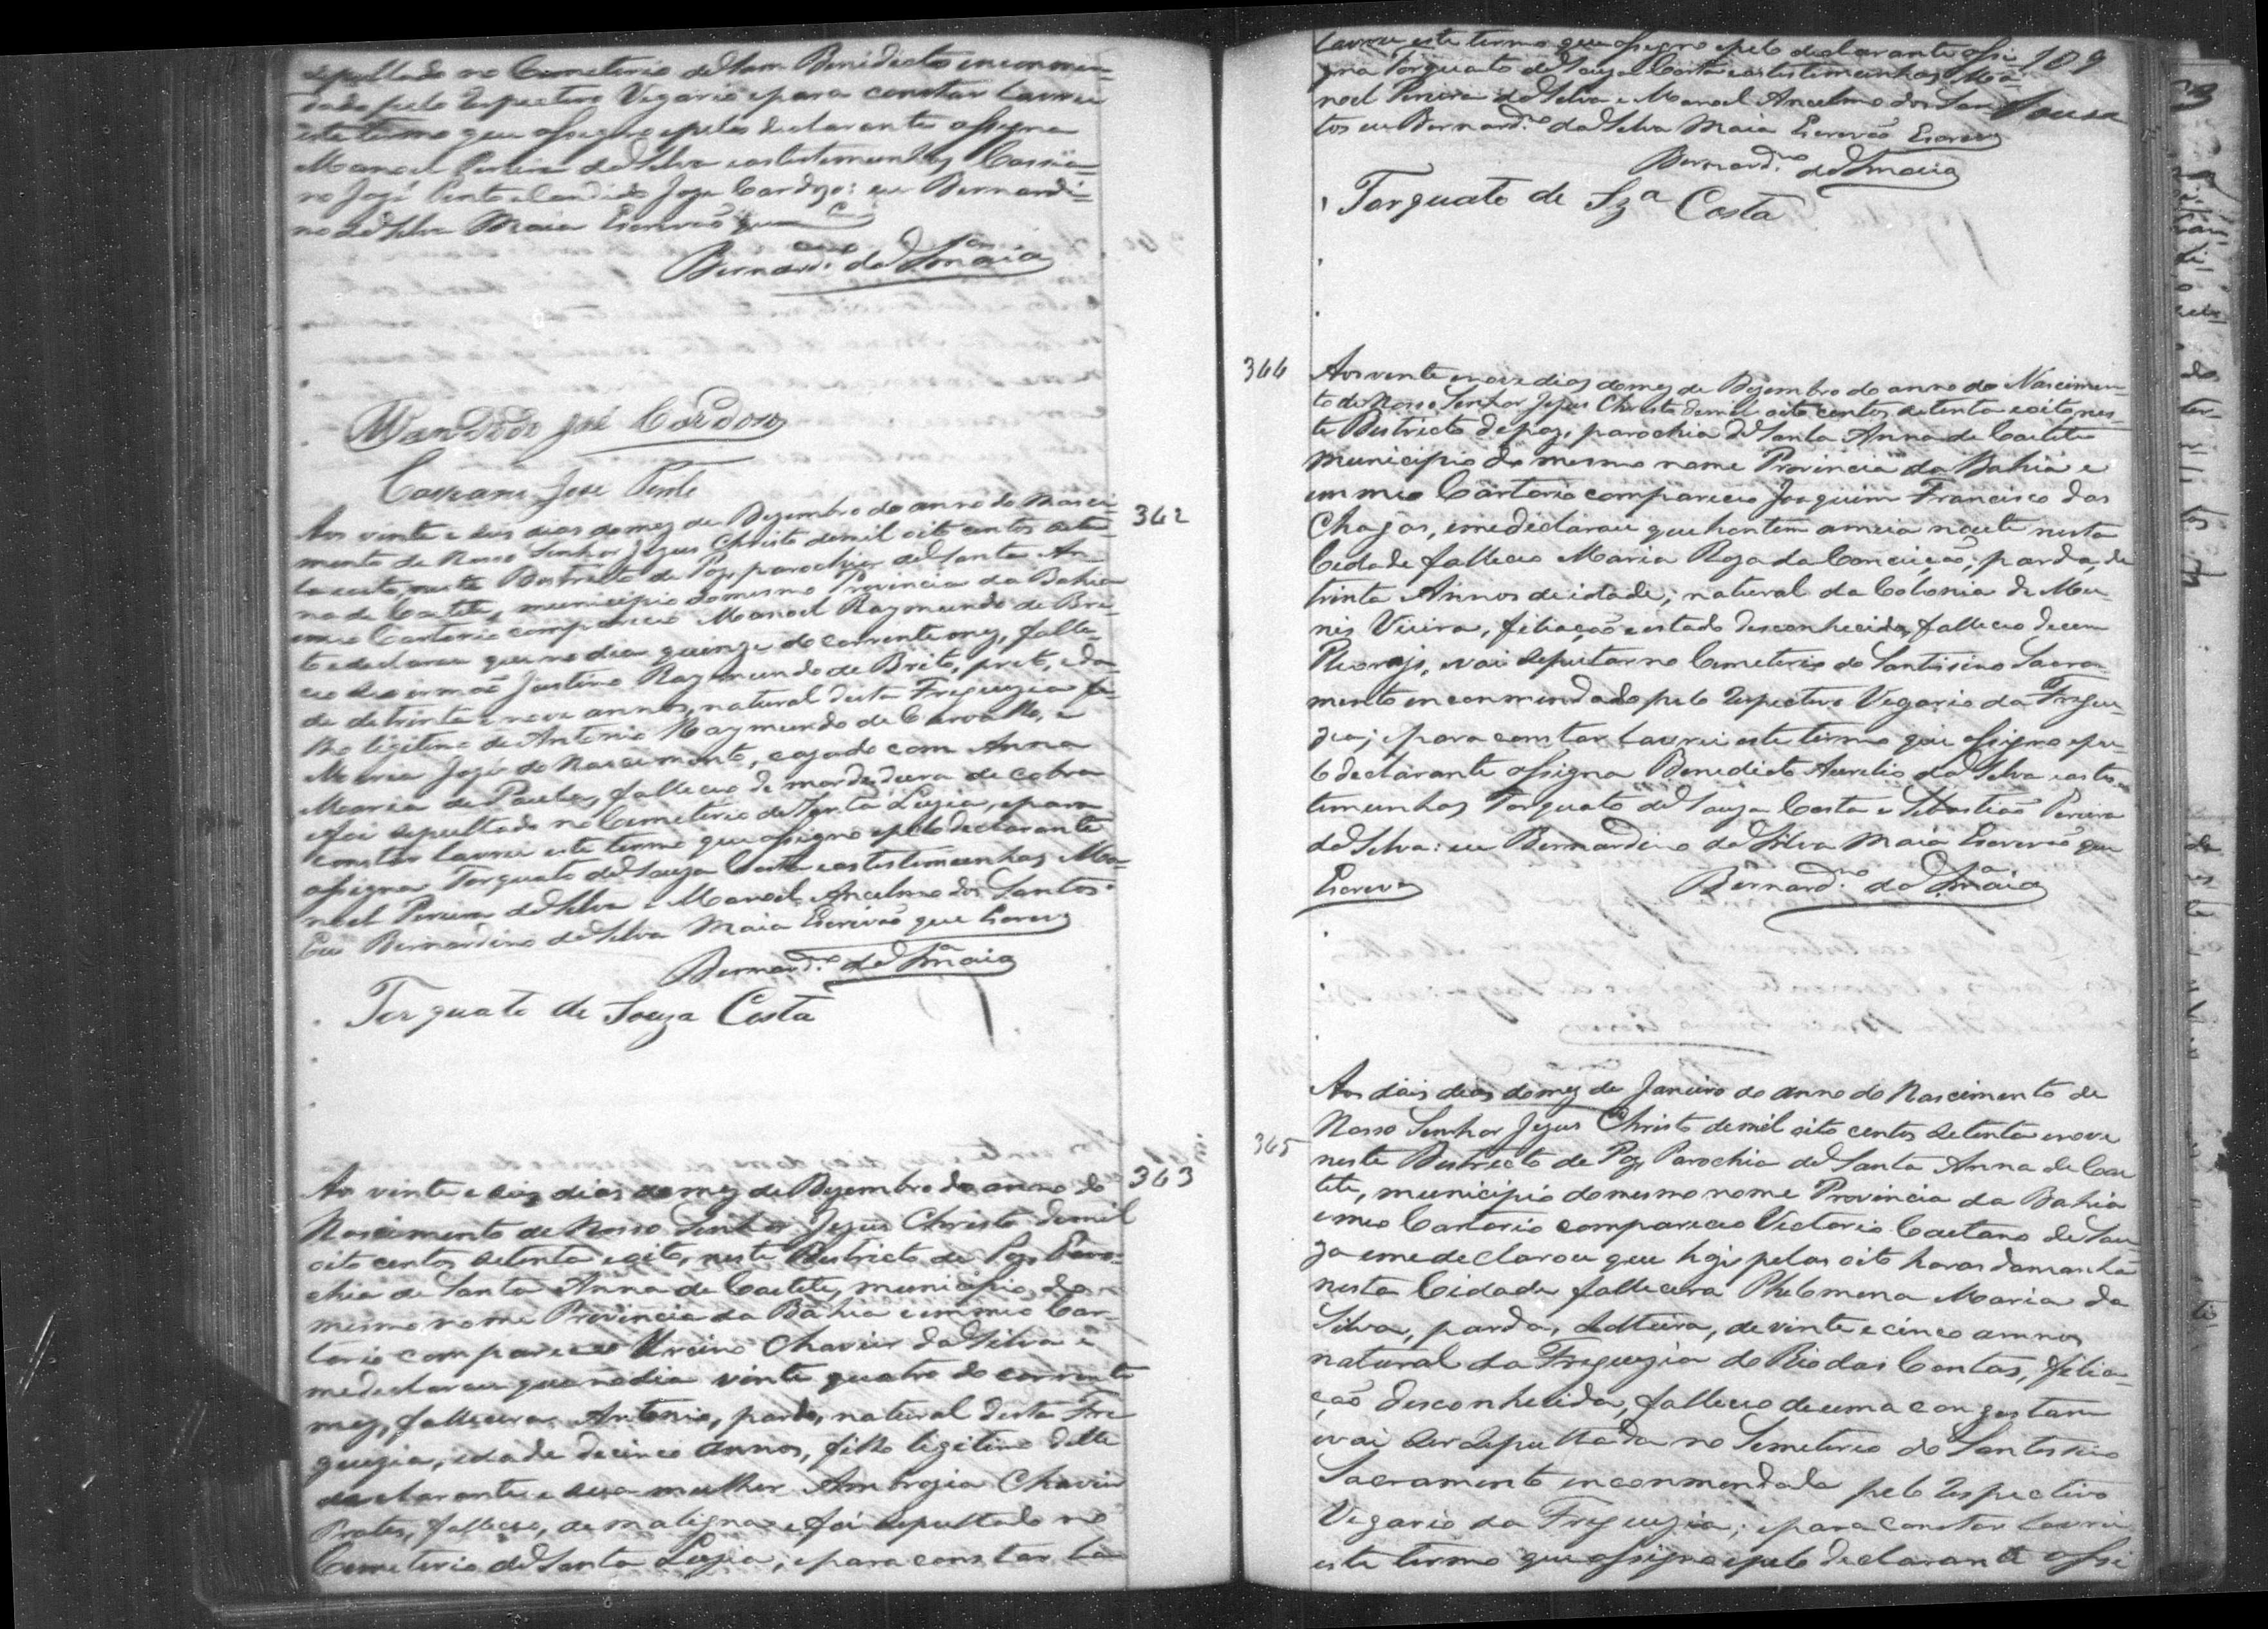 sepultado no Cemeterio de Sam Benidicto enconmen-
dado pelo respectivo Vegario epara constar lavrei
este termo que assigno epelo declarante assigna
Manoel Pereira da Silva eastestemunhas Cassia-
no José Pinto Candido Joze Cardozo: eu Bernardi-
no da Silva Maia Escrivão
Bernard.no da S.a Maia
Candido José Cardoso
Cassiano Jose Pinto
362
Aos vinte e seis dias do mez de Dezembro do anno do Nasci-
mento de Nosso Senhor Jezus Christo demil oito centos seten-
ta eoito, neste Destricto de Paz, parochia de Santa An-
na de Caetité, municipio do mesmo Provincia da Bahia
emmeo Cartorio compareceo Manoel Raymundo de Bri-
to edeclarou que no dia quinze do corrente mez, falle-
ceo seo irmão Justino Raymundo de Brito, preto, eda-
de de trinta e nove annos, natural desta Freguezia fi-
lho ligitimo de Antonio Raymundo de Carvalho, e
Maria José do Nascimento, cazado com Anna
Maria de Paula, falleceo de mordedura de cobra
efoi sepultado no Cemeterio de Santa Luzia, epara
constar lavrei este termo que assigno epelo declarante
assigna Torquato de Souza Costa eastestemunhas Ma-
noel Pereira da Silva e Manoel Ancelmo dos Santos.
Eu Bernardino da Silva Maia Escrivão que Escrevy
Bernard.no da S.a Maia
Torquato de Souza Costa
363
Ao vinte e seis dias do mez de Dezembro do anno do
Nascimento de Nosso Senhor Jezus Christo demil
oito centos setenta eoito, neste Destricto de Paz Paro-
chia de Santa Anna de Caetite, municipio do
mesmo nome Provincia da Bahia eemmeo Car-
torio compareceo Urcino Chavier da Silva e
medeclarou que nodia vinte quatro do corrente
mez, fallecera Antonio, pardo, natural desta Fre
guezia, idade decinco annos, filho ligitimo delle
declarante e sua mulher Ambrozia Chavier
Prates, falleceo, de maligna e foi sepultado no
Cemeterio de Santa Luzia, epara constar la
109
Souza
Lavrei este termo que assigno epelo declarante assi
gna Torquato de Souza Costa eastestimunhas Ma-
noel Pereira da Silva e Manoel Ancelmo dos San-
tos eu Bernard.no da Silva Maia Escrivão Escrevy
Bernard.no da S.a Maia
Torquato de Sza Costa
364
Aos vinte enove dias domez de Dezembro do anno do Nascimen-
to de Nosso Senhor Jezus Christo demil oito centos setenta eoito nes-
te Destricto de paz, parochia de Santa Anna de Caetite
municipio do mesmo nome Provincia da Bahia e
em meo Cartorio compareceo Joaquim Francisco das
Chagas, emedeclarou que hontem ameia noute nesta
Cidade falleceo Maria Roza da Conceição, parda, de
trinta Annos deidade; natural da Colonia de Mu-
niz Vieira, filiação eestado desconhecidos, falleceo de um
Pleoraji, evai sepultar no Cemeterio do Santissimo Sacra-
mento enconmendado pelo respectivo Vegario da Fregue-
zia; epara constar lavrei este termo que assigno epe-
lo declarante assigna Benedicto Aurelio da Silva eastes-
temunhas Torquato de Souza Costa e Sebastião Pereira
da Silva: eu Bernardino da Silva Maia Escrivão que
Escrevy
Bernard.no da S.a Maia
365
Aos dois dias domez de Janeiro do anno do Nascimento de
Nosso Senhor Jezus Christo demil oito centos setenta enove
neste Destricto de Paz, Parochia de Santa Anna de Cae
tite, municipio do mesmo nome Provincia da Bahia
emeo Cartorio compareceo Victorio Caetano de Sou-
za emedeclarou que hoje pelas oito horas damanhã
nesta Cidade fallecera Philomena Maria da
Silva, parda, solteira, de vinte e cinco annos
natural da Freguezia do Rio das Contas, filia-
ção desconhecida, falleceo deuma congestam
evai ser sepultada no Semeterio do Santissimo
Sacramento enconmendada pelo respectivo
Vegario da Freguezia; epara constar lavrei
este termo que assigno epelo declarante assi